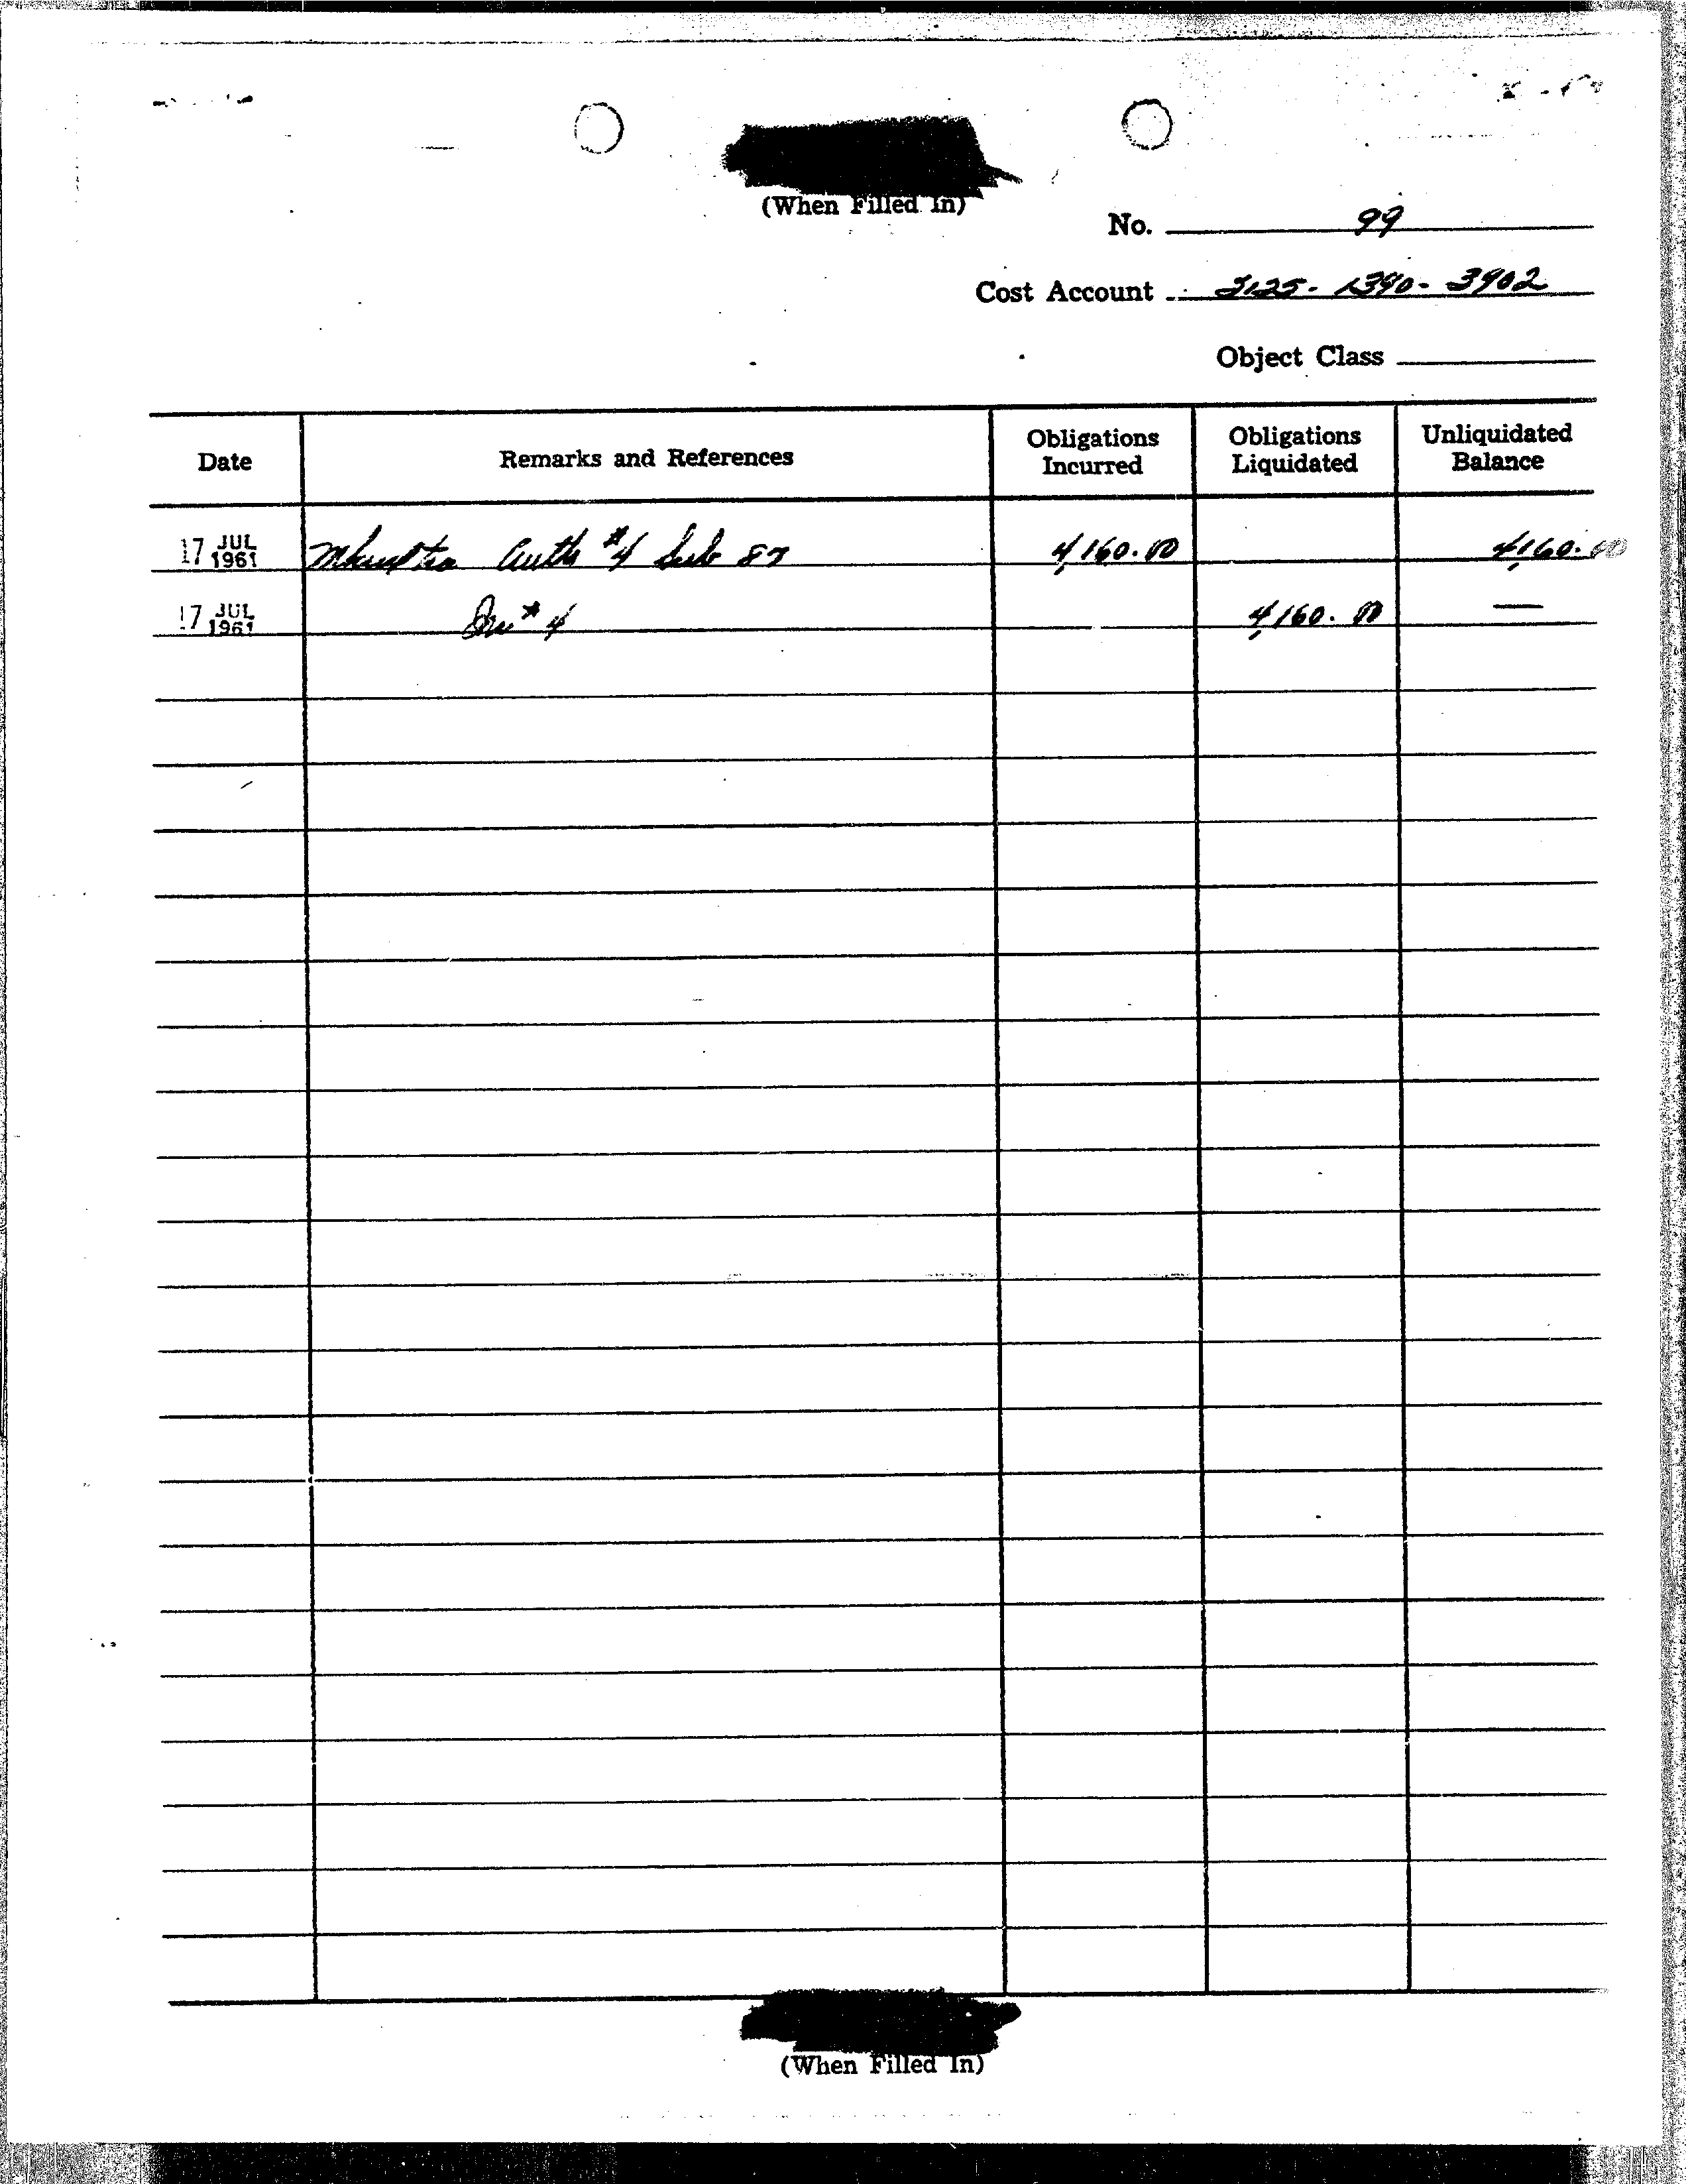 (When Filled In)
No. 99
Cost Account 3125-1390-3902
Object Class
Date Remarks and References Obligations Incurred Obligations Liquidated Unliquidated Balance
17 JUL 1961 Mkultra Auth #4 Sub 87 4,160.00 4,160.00
17 JUL 1961 Inv #4 4,160.00 —
(When Filled In)